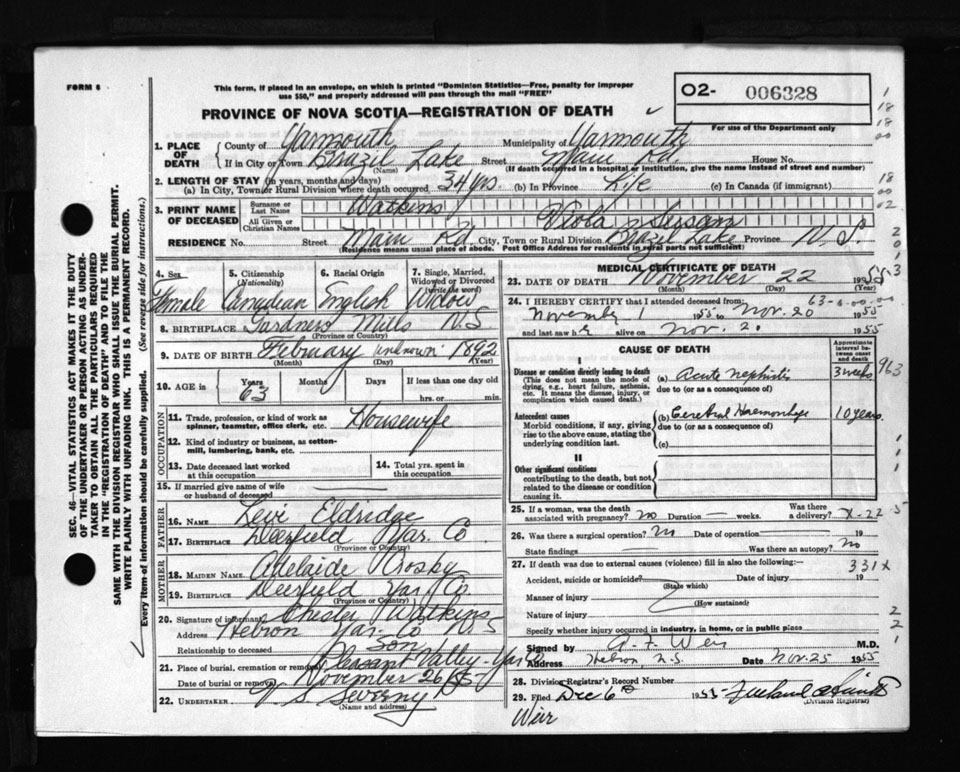 FORM 6
This form, if placed in an envelope, on which is printed "Dominion Statistics—Free, penalty for improper
use $50," and properly addressed will pass through the mail "FREE"
PROVINCE OF NOVA SCOTIA—REGISTRATION OF DEATH
O2- 006328
For use of the Department only
1. PLACE OF DEATH
County of Yarmouth Municipality of Yarmouth
If in City or Town Brazil Lake (Name) Street Main Rd. House No.
(If death occurred in a hospital or institution, give its name instead of street and number)
2. LENGTH OF STAY (in years, months and days)
(a) In City, Town or Rural Division where death occurred 34 yrs. (b) In Province Life (c) In Canada (if immigrant)
3. PRINT NAME OF DECEASED
Surname or Last Name Watkins
All Given or Christian Names Viola
RESIDENCE No. Street Main Rd City, Town or Rural Division Brazil Lake Province N. S.
(Residence means usual place of abode. Post Office Address for residents in rural parts not sufficient)
4. Sex Female
5. Citizenship (Nationality) Canadian
6. Racial Origin English
7. Single, Married, Widowed or Divorced (Write the word) Widow
8. BIRTHPLACE Gardners Mills N.S
9. DATE OF BIRTH February unknown 1892
(Month) (Day) (Year)
10. AGE in Years 63 Months Days If less than one day old
hrs. or min.
OCCUPATION
11. Trade, profession, or kind of work as
spinner, teamster, office clerk, etc. Housewife
12. Kind of industry or business, as cotton-
mill, lumbering, bank, etc.
13. Date deceased last worked
at this occupation
14. Total yrs. spent in
this occupation
15. If married give name of wife
or husband of deceased
FATHER
16. NAME Levi Eldridge
17. BIRTHPLACE Deerfield Yar. Co.
(Province or Country)
MOTHER
18. MAIDEN NAME Adelaide Crosby
19. BIRTHPLACE Deerfield Yar. Co.
(Province or Country)
20. Signature of informant Chester Watkins
Address Hebron Yar. Co N.S
Relationship to deceased Son
21. Place of burial, cremation or removal Pleasant Valley - Yar Co
Date of burial or removal November 26/55
22. UNDERTAKER V S Sweeny
(Name and address)
MEDICAL CERTIFICATE OF DEATH
23. DATE OF DEATH November 22 1955
(Month) (Day)
24. I HEREBY CERTIFY that I attended deceased from:
November 1 1955 to Nov. 20 1955
and last saw her alive on Nov. 20 1955
CAUSE OF DEATH
Approximate interval between onset and death
I
Disease or condition directly leading to death
(This does not mean the mode of
dying, e.g., heart failure, asthenia,
etc. It means the disease, injury, or
complication which caused death.)
(a) Acute nephritis 3 weeks
due to (or as a consequence of)
Antecedent causes
Morbid conditions, if any, giving
rise to the above cause, stating the
underlying condition last.
(b) Cerebral Haemorrhage 10 years
due to (or as a consequence of)
(c)
II
Other significant conditions
contributing to the death, but not
related to the disease or condition
causing it.
25. If a woman, was the death
associated with pregnancy? no Duration — weeks. Was there
a delivery?
26. Was there a surgical operation? No Date of operation 19
State findings Was there an autopsy? No
27. If death was due to external causes (violence) fill in also the following:—
331x
Accident, suicide or homicide? Date of injury 19
(State which)
Manner of injury
(How sustained)
Nature of injury
Specify whether injury occurred in industry, in home, or in public place
Signed by A. F. Weir M.D.
Address Hebron N.S. Date Nov. 25 1955
28. Division Registrar's Record Number
29. Filed Dec 6th 1955
(Division Registrar)
Weir
SEC. 46—VITAL STATISTICS ACT MAKES IT THE DUTY
OF THE UNDERTAKER OR PERSON ACTING AS UNDER-
TAKER TO OBTAIN ALL THE PARTICULARS REQUIRED
IN THE "REGISTRATION OF DEATH" AND TO FILE THE
SAME WITH THE DIVISION REGISTRAR WHO SHALL ISSUE THE BURIAL PERMIT.
WRITE PLAINLY WITH UNFADING INK. THIS IS A PERMANENT RECORD.
Every item of information should be carefully supplied. (See reverse side for instructions.)